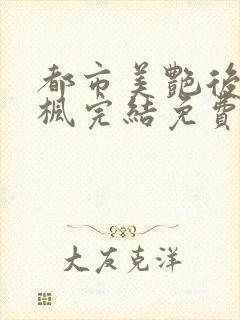 都市美艷後
楓完結免費
大友克洋